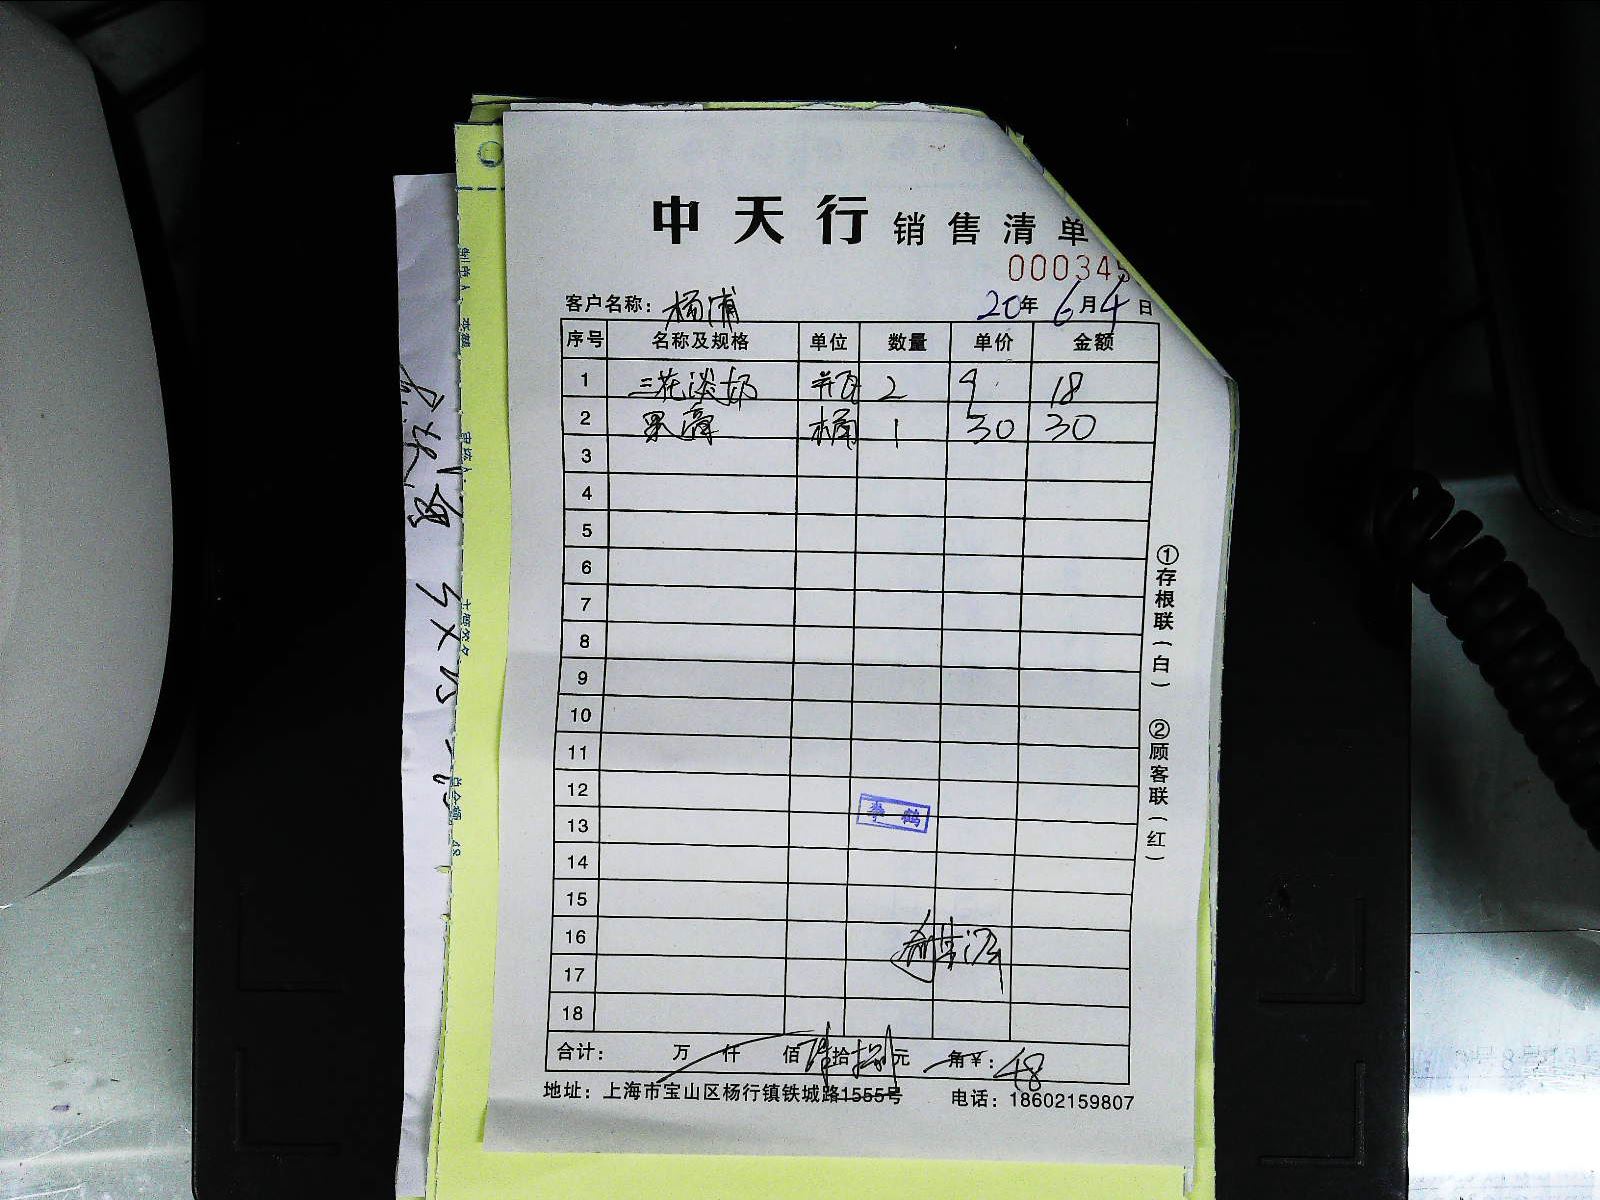 中天行 销售清单
000345
客户名称： 杨浦 20年6月4日
序号 名称及规格 单位 数量 单价 金额
1 三花淡奶 瓶 2 9 18
2 果膏 桶 1 30 30
3
4
5
6
7
8
9
10
11
12
13
14
15
16
17
18
合计： 万 仟 佰 肆拾捌元 角￥：48
地址：上海市宝山区杨行镇铁城路1555号 电话：18602159807
①存根联（白） ②顾客联（红）